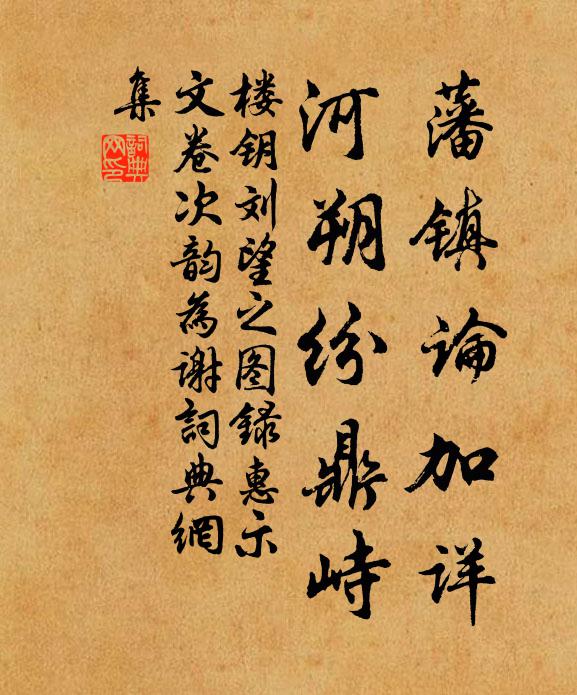 藩镇论加详
河朔纷鼎峙
楼钥刘望之图録惠示
文卷次韵为谢詞典網
集
詞典网印